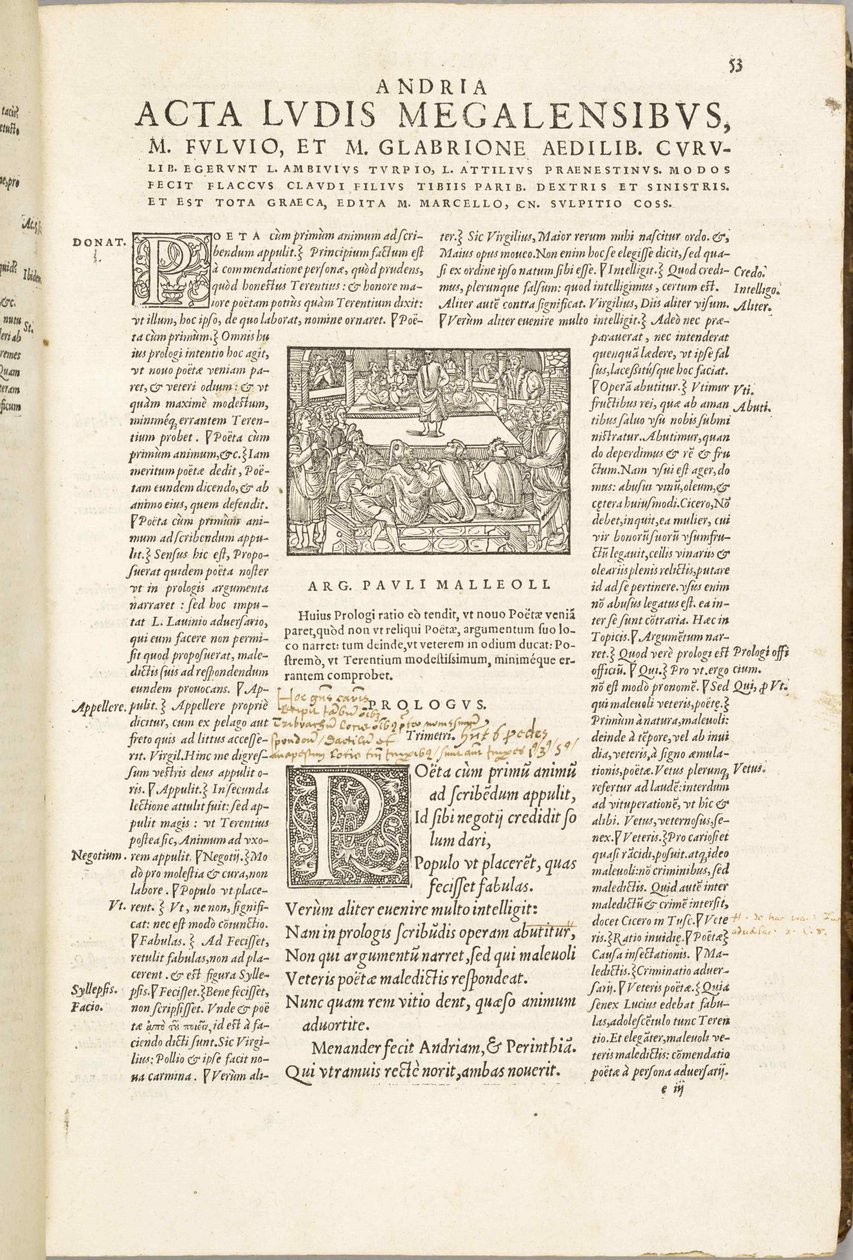 53
ANDRIA
ACTA LVDIS MEGALENSIBVS,
M. FVLVIO, ET M. GLABRIONE AEDILIB. CVRV-
LIB. EGERVNT L. AMBIVIVS TVRPIO, L. ATTILIVS PRAENESTINVS. MODOS
FECIT FLACCVS CLAVDI FILIVS TIBIIS PARIB. DEXTRIS ET SINISTRIS.
ET EST TOTA GRAECA, EDITA M. MARCELLO, CN. SVLPITIO COSS.
DONAT.
POETA cùm primùm animum ad scri-
bendum appulit.⁆ Principium factum est
à commendatione personæ, quòd prudens,
quòd honestius Terentius: & honore ma-
iore poëtam potiùs quàm Terentium dixit:
vt illum, hoc ipso, de quo laborat, nomine ornaret. ⁋Poë-
ta cùm primum.⁆ Omnis hu
ius prologi intentio hoc agit,
vt nouo poëtæ veniam pa-
ret, & veteri odium: & vt
quàm maximè modestum,
miniméq; errantem Teren-
tium probet. ⁋Poëta cùm
primùm animum, &c.⁆ Iam
meritum poëtæ dedit, Poë-
tam eundem dicendo, & ab
animo eius, quem defendit.
⁋Poëta cùm primùm ani-
mum ad scribendum appu-
lit.⁆ Sensus hic est, Propo-
suerat quidem poëta noster
vt in prologis argumenta
narraret: sed hoc impu-
tat L. Lauinio aduersario,
qui eum facere non permi-
sit quod proposuerat, male-
dictis suis ad respondendum
eundem prouocans. ⁋Ap-
Appellere. pulit.⁆ Appellere propriè
dicitur, cum ex pelago aut
freto quis ad littus accesse-
rit. Virgil. Hinc me digres-
sum vestris deus appulit o-
ris. ⁋Appulit.⁆ In secunda
lectione attulit fuit: sed ap-
pulit magis: vt Terentius
postea sic, Animum ad vxo-
Negotium. rem appulit. ⁋Negotij.⁆ Mo
dò pro molestia & cura, non
labore. ⁋Populo vt place-
Vt. rent.⁆ Vt, ne non, signifi-
cat: nec est modò cōiunctio.
⁋Fabulas.⁆ Ad Fecisset,
retulit fabulas, non ad pla-
cerent. & est figura Sylle-
Syllepsis. psis. ⁋Fecisset.⁆ Bene fecisset,
Facio. non scripsisset. Vnde & poë
tæ ἀπὸ τῦ ποιεῖν, id est à fa-
ciendo dicti sunt. Sic Virgi-
lius: Pollio & ipse facit no-
ua carmina. ⁋Verùm ali-
ter.⁆ Sic Virgilius, Maior rerum mihi nascitur ordo. &,
Maius opus moueo. Non enim hoc se elegisse dicit, sed qua-
si ex ordine ipso natum sibi esse. ⁋Intelligit.⁆ Quod credi- Credo.
mus, plerunque falsum: quod intelligimus, certum est. Intelligo.
Aliter autē contra significat. Virgilius, Diis aliter visum. Aliter.
⁋Verùm aliter euenire multo intelligit.⁆ Adeò nec præ-
parauerat, nec intenderat
quenquā lædere, vt ipse fal
sus, lacessitúsque hoc faciat.
⁋Operā abutitur.⁆ Vtimur Vti.
fructibus rei, quæ ab aman Abuti.
tibus saluo vsu nobis submi
nistratur. Abutimur, quan
do deperdimus & rē & fru
ctum. Nam vsui est ager, do
mus: abusui vinū, oleum, &
cętera huiusmodi. Cicero, Nō
debet, inquit, ea mulier, cui
vir bonorū suorū vsumfru-
ctū legauit, cellis vinariis &
oleariis plenis relictis, putare
id ad se pertinere. vsus enim
nō abusus legatus est. ea in-
ter se sunt cōtraria. Hæc in
Topicis. ⁋Argumētum nar-
ret.⁆ Quod verè prologi est Prologi offi
officiū. ⁋Qui.⁆ Pro vt. ergo cium.
nō est modò pronomē. ⁋Sed Qui, ꝓ Vt.
qui maleuoli veteris, poëtę.⁆
Primùm à natura, maleuoli:
deinde à tēpore, vel ab inui
dia, veteris, à signo æmula-
tionis, poëtæ. Vetus plerunq; Vetus.
refertur ad laudē: interdum
ad vituperationē, vt hic &
alibi. Vetus, veternosus, se-
nex. ⁋Veteris.⁆ Pro cariosiet
quasi rācidi, posuit. atq; ideo
maleuoli: nō criminibus, sed
maledictis. Quid autē inter
maledictū & crimē intersit,
docet Cicero in Tusc. ⁋Vete
ris.⁆ Ratio inuidię. ⁋Poëtæ⁆
Causa insectationis. ⁋Ma-
ledictis.⁆ Criminatio aduer-
sarij. ⁋Veteris poëtæ.⁆ Quia
senex Lucius edebat fabu-
las, adolescētulo tunc Teren
tio. Et elegāter, maleuoli ve-
teris maledictis: cōmendatio
poëtæ à persona aduersarij.
ARG. PAVLI MALLEOLI.
Huius Prologi ratio eò tendit, vt nouo Poëtæ veniā
paret, quòd non vt reliqui Poëtæ, argumentum suo lo-
co narret: tum deinde, vt veterem in odium ducat: Po-
stremò, vt Terentium modestissimum, miniméque er-
rantem comprobet.
PROLOGVS.
Trimetri.
POëta cùm primū animū
ad scribēdum appulit,
Id sibi negotij credidit so
lum dari,
Populo vt placerēt, quas
fecisset fabulas.
Verùm aliter euenire multo intelligit:
Nam in prologis scribūdis operam abutitur,
Non qui argumentū narret, sed qui maleuoli
Veteris poëtæ maledictis respondeat.
Nunc quam rem vitio dent, quæso animum
aduortite.
Menander fecit Andriam, & Perinthiā.
Qui vtramuis rectè norit, ambas nouerit.
e iij